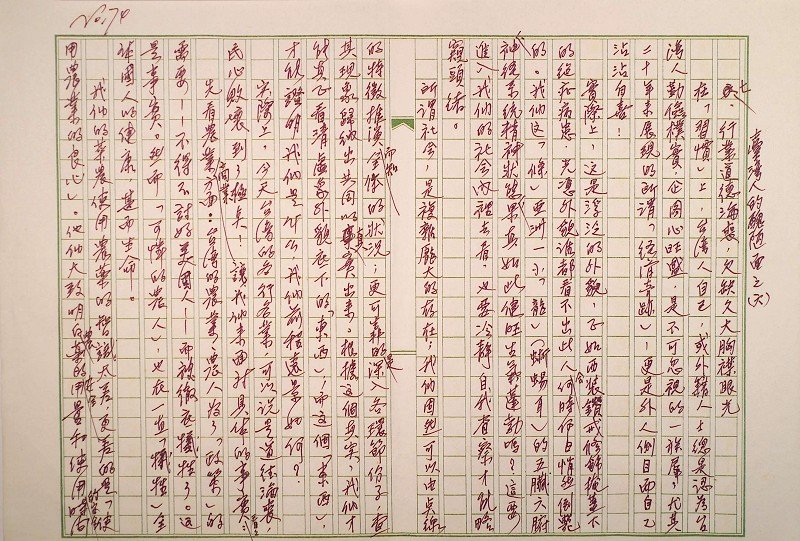 No.74
臺灣人的醜陋面之(六)
七 民、行業道德淪喪,欠缺久大胸襟眼光
在「習慣」上,台灣人自己,或外籍人士總是認為台
灣人勤儉樸實,企圖心旺盛,是不可忽視的一族羣,尤其
二十年來展現的所謂「經濟奇跡」,更是外人側目而自己
沾沾自喜!
實際上,這是浮泛的外貌,正如西裝鑽戒修飾掩蓋下
的絕症病患,光憑外貌誰都看不出此人何時何日會悄然倒斃
的。我們這「條」亞洲一小「龍」(蜥蜴耳)的五臟六腑
神經系統精神狀態果真如此健旺生氣蓬勃嗎?這要
進入我們的社會內裡去看,也要冷靜自我省察才能略
窺頭緒。
所謂社會,是複雜龐大的存在;我們固然可以由點線
的特徵推演而知全體的狀況;更可靠的是深入各環節份子,查
其現象歸納出共同的真實出來。根據這個真實,我們才
能真正看清虛象外貌底下的「東西」;而這個「東西」,
才能證明我們是什麼,我們前程遠景如何?
實際上,今天台灣的各行各業,可以說是道德淪喪,
民心敗壞到了極點!讓我們來面對具體的事實:
先看農業方面:台灣的農業,農人為了「政策」的
需要——不得不討好美國人——而被徹底犧牲了。這
是事實。然而「可憐的農人」,也在一直「犧牲」全
體國人的健康,甚而生命。
我們的菜農使用農藥的智識太差,更差的是「使
用農藥的良心」。他們大致明白農藥的用量和使用